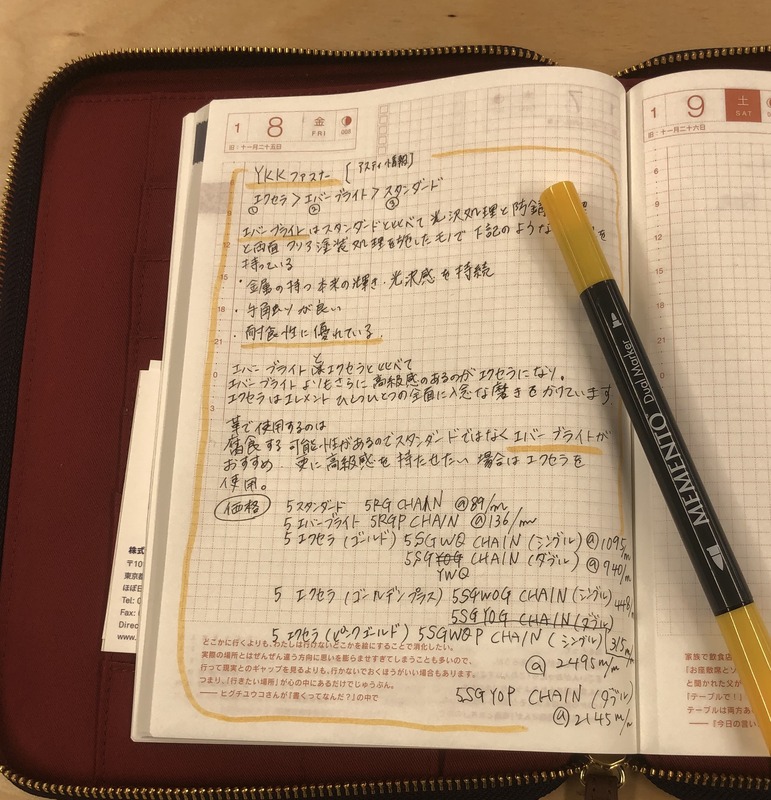 1 8 金 FRI 008
旧:十一月二十五日
YKKファスナー [アスティ情報]
エクセラ > エバーブライト > スタンダード
① ② ③
エバーブライトはスタンダードと比べて光沢処理と防錆
と両面クリア塗装処理を施したモノで下記のような を
持っている
・金属の持つ本来の輝き、光沢感を持続
・手触りが良い
・耐食性に優れている。
エバーブライトとエクセラと比べて
エバーブライトよりもさらに高級感のあるのがエクセラになり。
エクセラはエレメントひとつひとつの全面に入念な磨きをかけています
革で使用するのは
腐食する可能性があるのでスタンダードではなくエバーブライトが
おすすめ。更に高級感を持たせたい場合はエクセラを
使用。
価格 5 スタンダード 5RG CHAIN @89/m
5 エバーブライト 5RGP CHAIN @136/m
5 エクセラ(ゴールド) 5SGWQ CHAIN (シングル) @1095/m
5SG YOG CHAIN (ダブル) @940/m
YWQ
5 エクセラ(ゴールデンブラス) 5SGWOG CHAIN (シングル)
5SGYOG CHAIN (ダブル)
5 エクセラ(ピンクゴールド) 5SGWOP CHAIN (シングル)
@2495m/m
5SGYOP CHAIN (ダブル)
@2145m/m
どこかに行くよりも、わたしは行けないどこかを絵にすることで消化したい。
実際の場所とはぜんぜん違う方向に思いを膨らませすぎてしまうことも多いので、
行って現実とのギャップを見るよりも、行かないでおくほうがいい場合もあります。
つまり、「行きたい場所」が心の中にあるだけでじゅうぶん。
——ヒグチユウコさんが『書くってなんだ?』の中で
1 9 土 SAT
旧:十一月二十六日
MEMENTO Dual Marker
株式
〒10
東京都
ほぼ日
Tel: 0
Fax:
Direc
www.
家族で飲食店
「お座敷席と
と聞かれた父が
「テーブルで!」
テーブルは両方あ
——『今日の言い